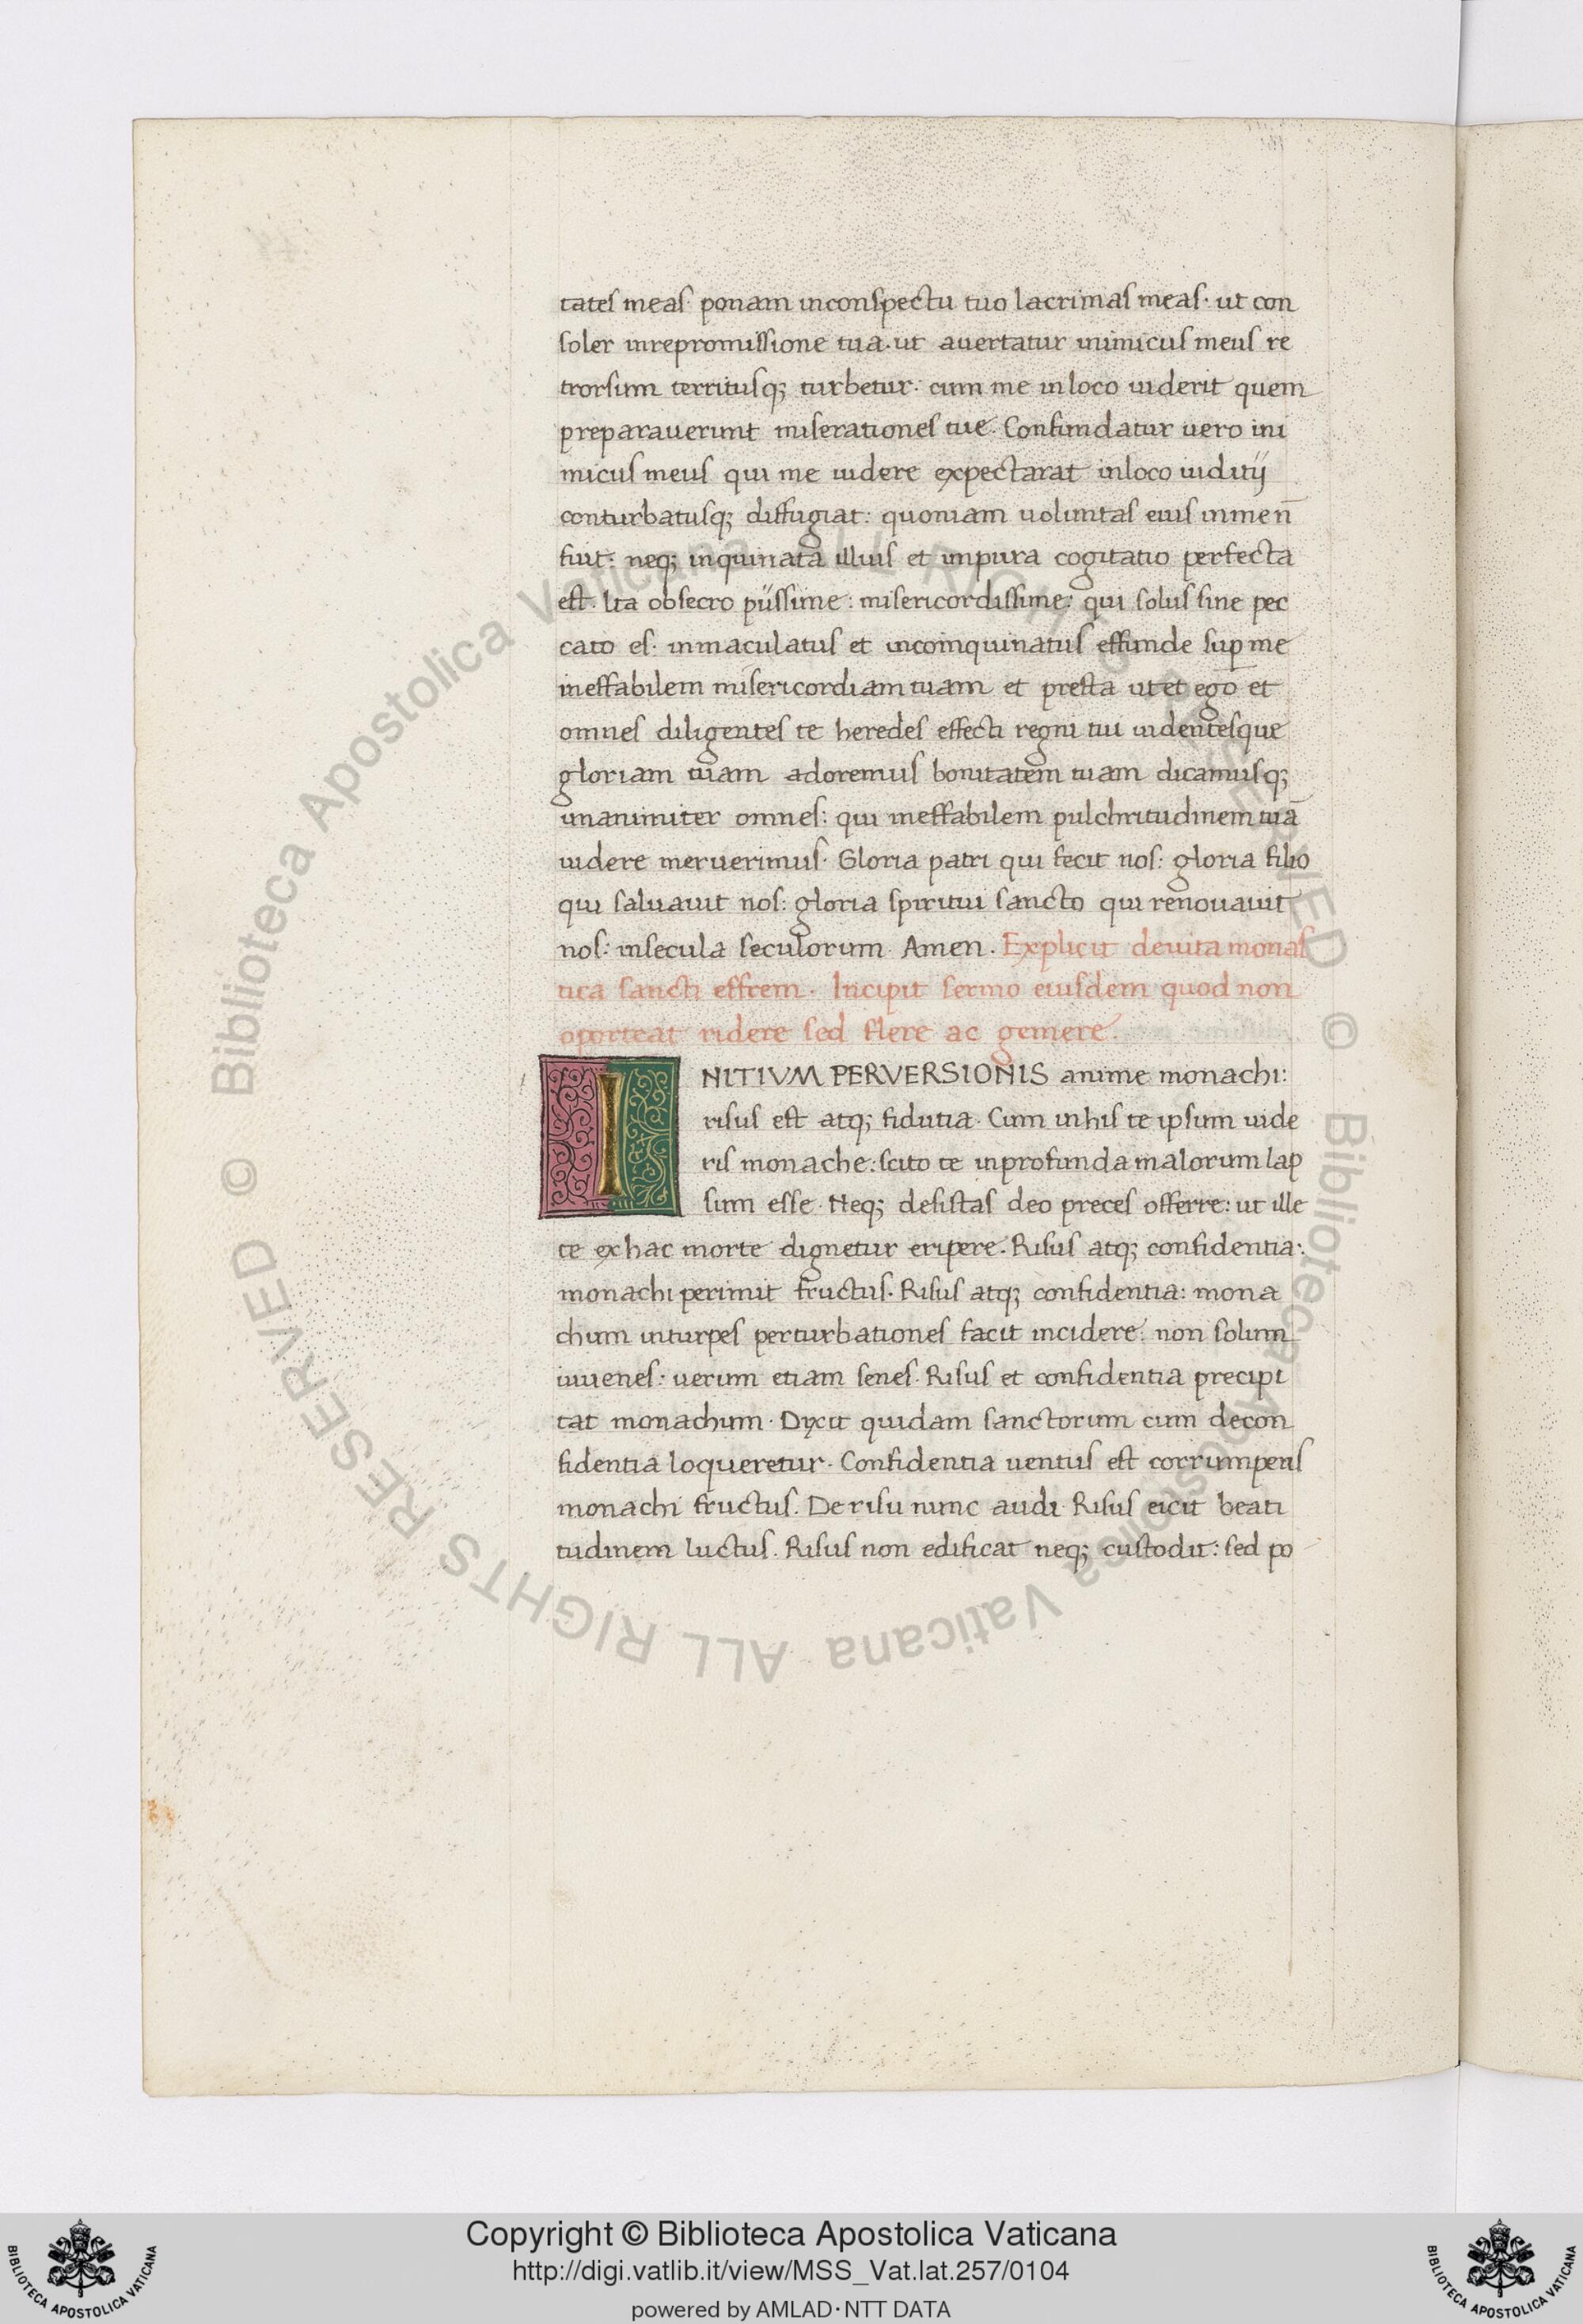 tates meas· ponam inconspectu tuo lacrimas meas· ut con
soler inrepromissione tua· ut avertatur inimicus meus re
trorsum territusq; turbetur: cum me inloco uiderit quem
preparaverunt miserationes tue. Confundatur uero ini
micus meus qui me uidere expectarat inloco iuditij
conturbatusq; diffugiat: quoniam uoluntas eius inmen̄
fuit: neq; inquinata illius et impura cogitatio perfecta
est. Ita obsecro piissime: misericordissime: qui solus sine pec
cato es· inmaculatus et incoinquinatus effunde sup̱ me
ineffabilem misericordiam tuam et presta ut et ego et
omnes diligentes te heredes effecti regni tui uidentesque
gloriam tuam adoremus bonitatem tuam dicamusq;
unanimiter omnes: qui ineffabilem pulchritudinem tuā
uidere meruerimus· Gloria patri qui fecit nos: gloria filio
qui saluauit nos: gloria spiritui sancto qui renouauit
nos: insecula seculorum· Amen. Explicit deuita monas
tica sancti effrem· Incipit sermo eiusdem quod non
oporteat ridere sed flere ac gemere.
INITIVM PERVERSIONIS anime monachi:
risus est atq; fidutia· Cum inhis te ipsum uide
ris monache: scito te inprofunda malorum lap
sum esse· Neq; desistas deo preces offerre: ut ille
te exhac morte dignetur eripere. Risus atq; confidentia:
monachi perimit fructus. Risus atq; confidentia: mona
chum inturpes perturbationes facit incidere: non solum
iuuenes: uerum etiam senes. Risus et confidentia precipi
tat monachum· Dixit quidam sanctorum cum decon
fidentia loqueretur· Confidentia uentus est corrumpens
monachi fructus. De risu nunc audi· Risus eicit beati
tudinem luctus. Risus non edificat neq; custodit: sed po
© Biblioteca Apostolica Vaticana ALL RIGHTS RESERVED © Biblioteca Apostolica Vaticana ALL RIGHTS RESERVED
Copyright © Biblioteca Apostolica Vaticana
http://digi.vatlib.it/view/MSS_Vat.lat.257/0104
powered by AMLAD·NTT DATA
BIBLIOTECA APOSTOLICA VATICANA
BIBLIOTECA APOSTOLICA VATICANA